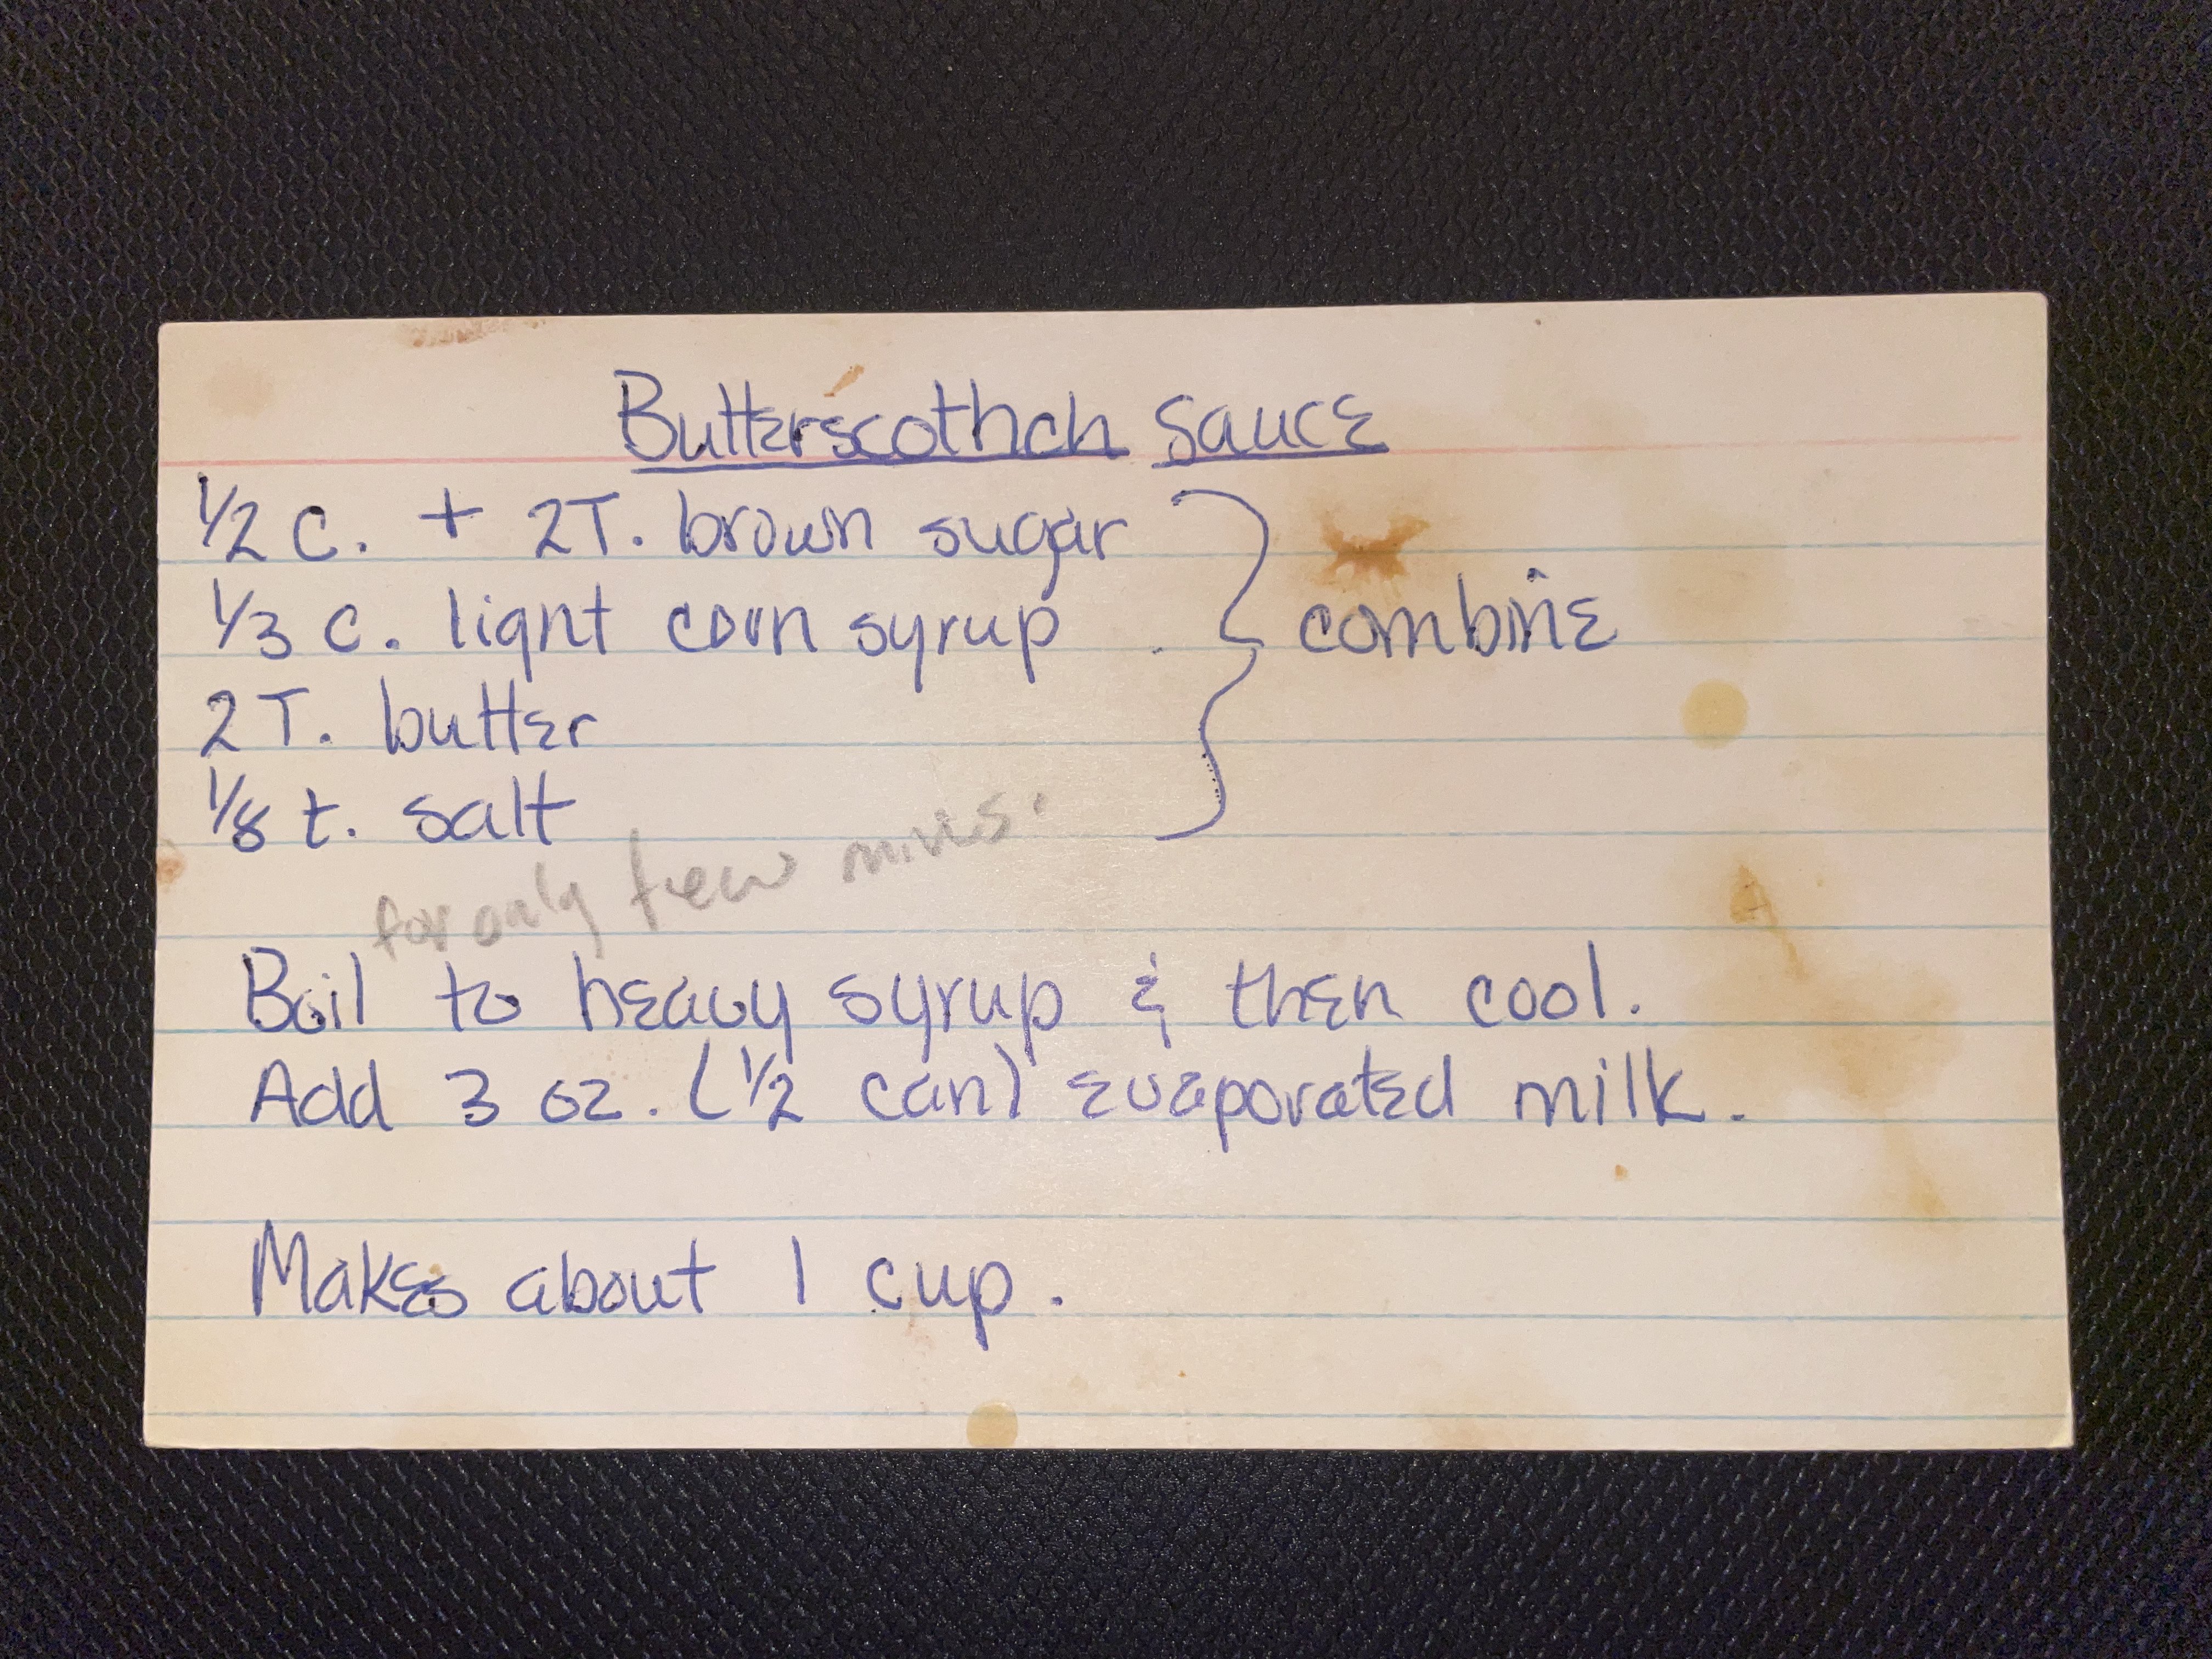 Butterscothch Sauce
1/2 c. + 2T. brown sugar
1/3 c. light corn syrup
combine
2 T. butter
1/8 t. salt
for only few mins.
Boil to heavy syrup & then cool.
Add 3 oz. (1/2 can) evaporated milk.
Makes about 1 cup.